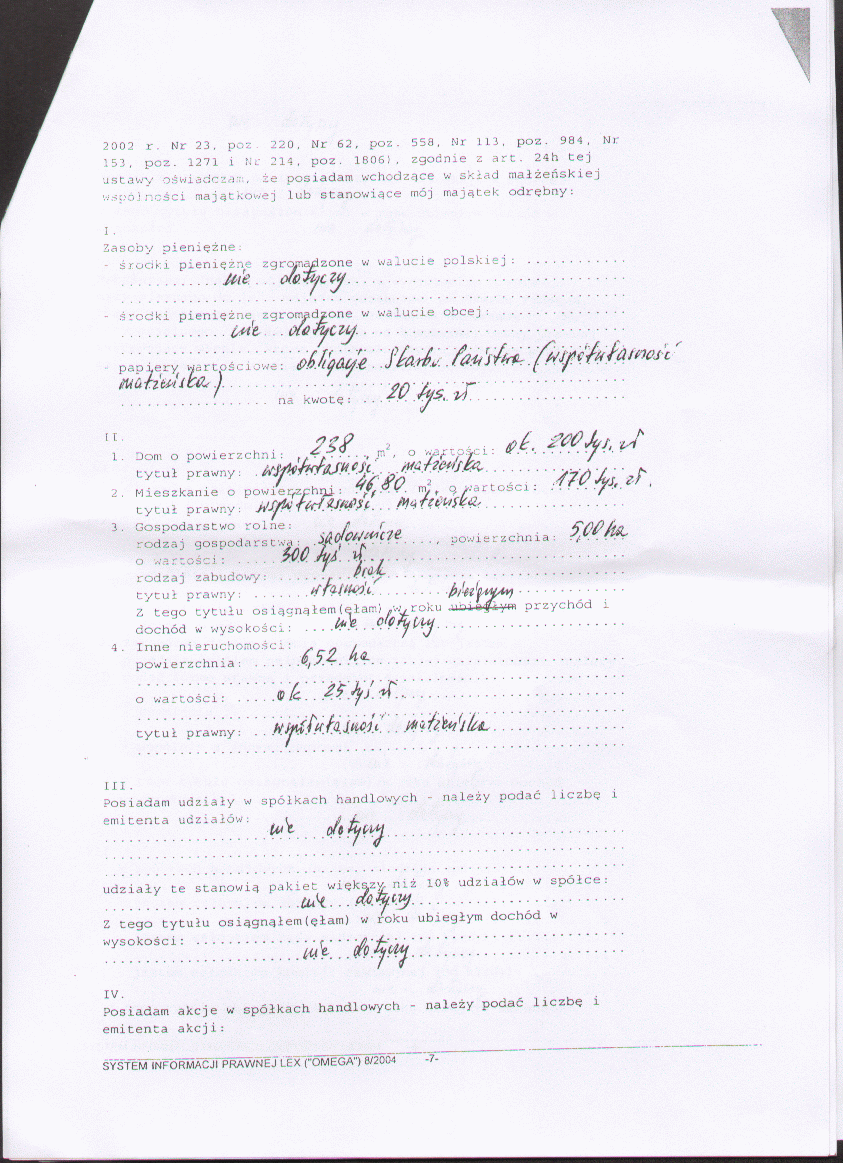 2002 r. Nr 23, poz. 220, Nr 62, poz. 558, Nr 113, poz. 984, Nr
153, poz. 1271 i Nr 214, poz. 1806), zgodnie z art. 24h tej
ustawy oświadczam, że posiadam wchodzące w skład małżeńskiej
wspólności majątkowej lub stanowiące mój majątek odrębny:
I.
Zasoby pieniężne:
- środki pieniężne zgromadzone w walucie polskiej:
nie dotyczy
- środki pieniężne zgromadzone w walucie obcej:
nie dotyczy
- papiery wartościowe: obligacje Skarbu Państwa (współwłasność
małżeńska)
na kwotę: 20 tys. zł
II.
1. Dom o powierzchni: 238 m², o wartości: ok. 200 tys. zł
tytuł prawny: współwłasność małżeńska
2. Mieszkanie o powierzchni: 46,80 m², o wartości: 170 tys. zł.
tytuł prawny: współwłasność małżeńska
3. Gospodarstwo rolne:
rodzaj gospodarstwa: sadownicze, powierzchnia: 5,00 ha
o wartości: 300 tys zł
rodzaj zabudowy: brak
tytuł prawny: własność bieżącym
Z tego tytułu osiągnąłem(ęłam) w roku ubiegłym przychód i
dochód w wysokości: nie dotyczy
4. Inne nieruchomości:
powierzchnia: 6,52 ha
o wartości: ok. 25 tyś zł
tytuł prawny: współwłasność małżeńska
III.
Posiadam udziały w spółkach handlowych - należy podać liczbę i
emitenta udziałów:
nie dotyczy
udziały te stanowią pakiet większy niż 10% udziałów w spółce:
nie dotyczy
Z tego tytułu osiągnąłem(ęłam) w roku ubiegłym dochód w
wysokości:
nie dotyczy
IV.
Posiadam akcje w spółkach handlowych - należy podać liczbę i
emitenta akcji:
SYSTEM INFORMACJI PRAWNEJ LEX ("OMEGA") 8/2004 -7-